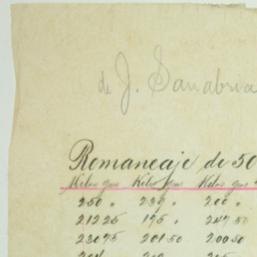 de J. Sanabria
Romaneaje de 50
Kilos gms Kilos gms Kilos gms
250 " 239 " 200 "
212 25 195 " 247 50
230 75 201 50 200 50